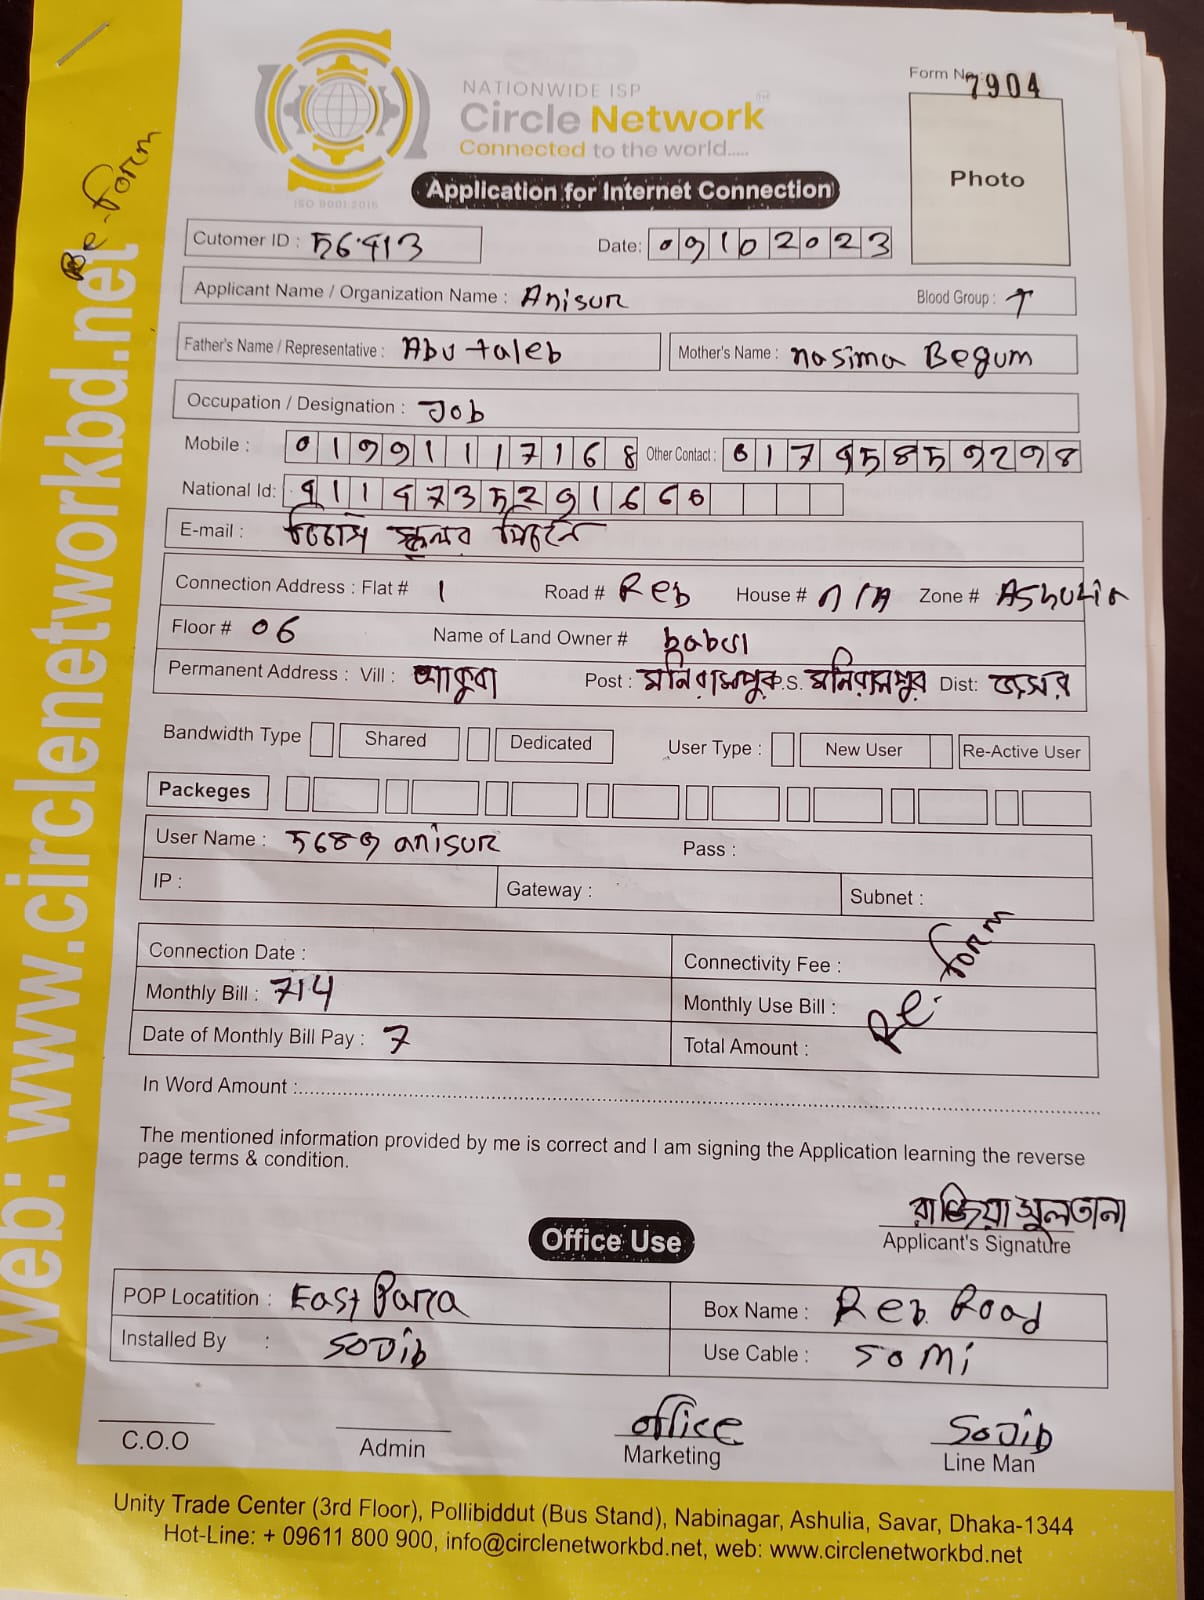 Form No: 7904
NATIONWIDE ISP
Circle Network
Connected to the world.....
ISO 9001:2015
Application for Internet Connection
Photo
Re-form
Web: www.circlenetworkbd.net
Cutomer ID : 56913 Date: 09102023
Applicant Name / Organization Name : Anisur Blood Group :
Father's Name / Representative : Abu taleb Mother's Name : nasima Begum
Occupation / Designation : Job
Mobile : 01991117168 Other Contact :
National Id:
E-mail : স্কুলের পিছনে
Connection Address : Flat # 1 Road # Reb House # n/A Zone # Ashulia
Floor # 06 Name of Land Owner # babul
Permanent Address : Vill : Post : মনিরামপুর P.S. মনিরামপুর Dist: যশোর
Bandwidth Type Shared Dedicated User Type : New User Re-Active User
Packeges
User Name : 5689 anisur Pass :
IP : Gateway : Subnet :
Connection Date : Connectivity Fee :
Monthly Bill : 714 Monthly Use Bill :
Date of Monthly Bill Pay : 7 Total Amount :
Re-form
In Word Amount :
The mentioned information provided by me is correct and I am signing the Application learning the reverse
page terms & condition.
রাজিয়া সুলতানা
Applicant's Signature
Office Use
POP Locatition : East Para Box Name : Reb Road
Installed By : Sojib Use Cable : 50 Mi
office Sojib
C.O.O Admin Marketing Line Man
Unity Trade Center (3rd Floor), Pollibiddut (Bus Stand), Nabinagar, Ashulia, Savar, Dhaka-1344
Hot-Line: + 09611 800 900, info@circlenetworkbd.net, web: www.circlenetworkbd.net